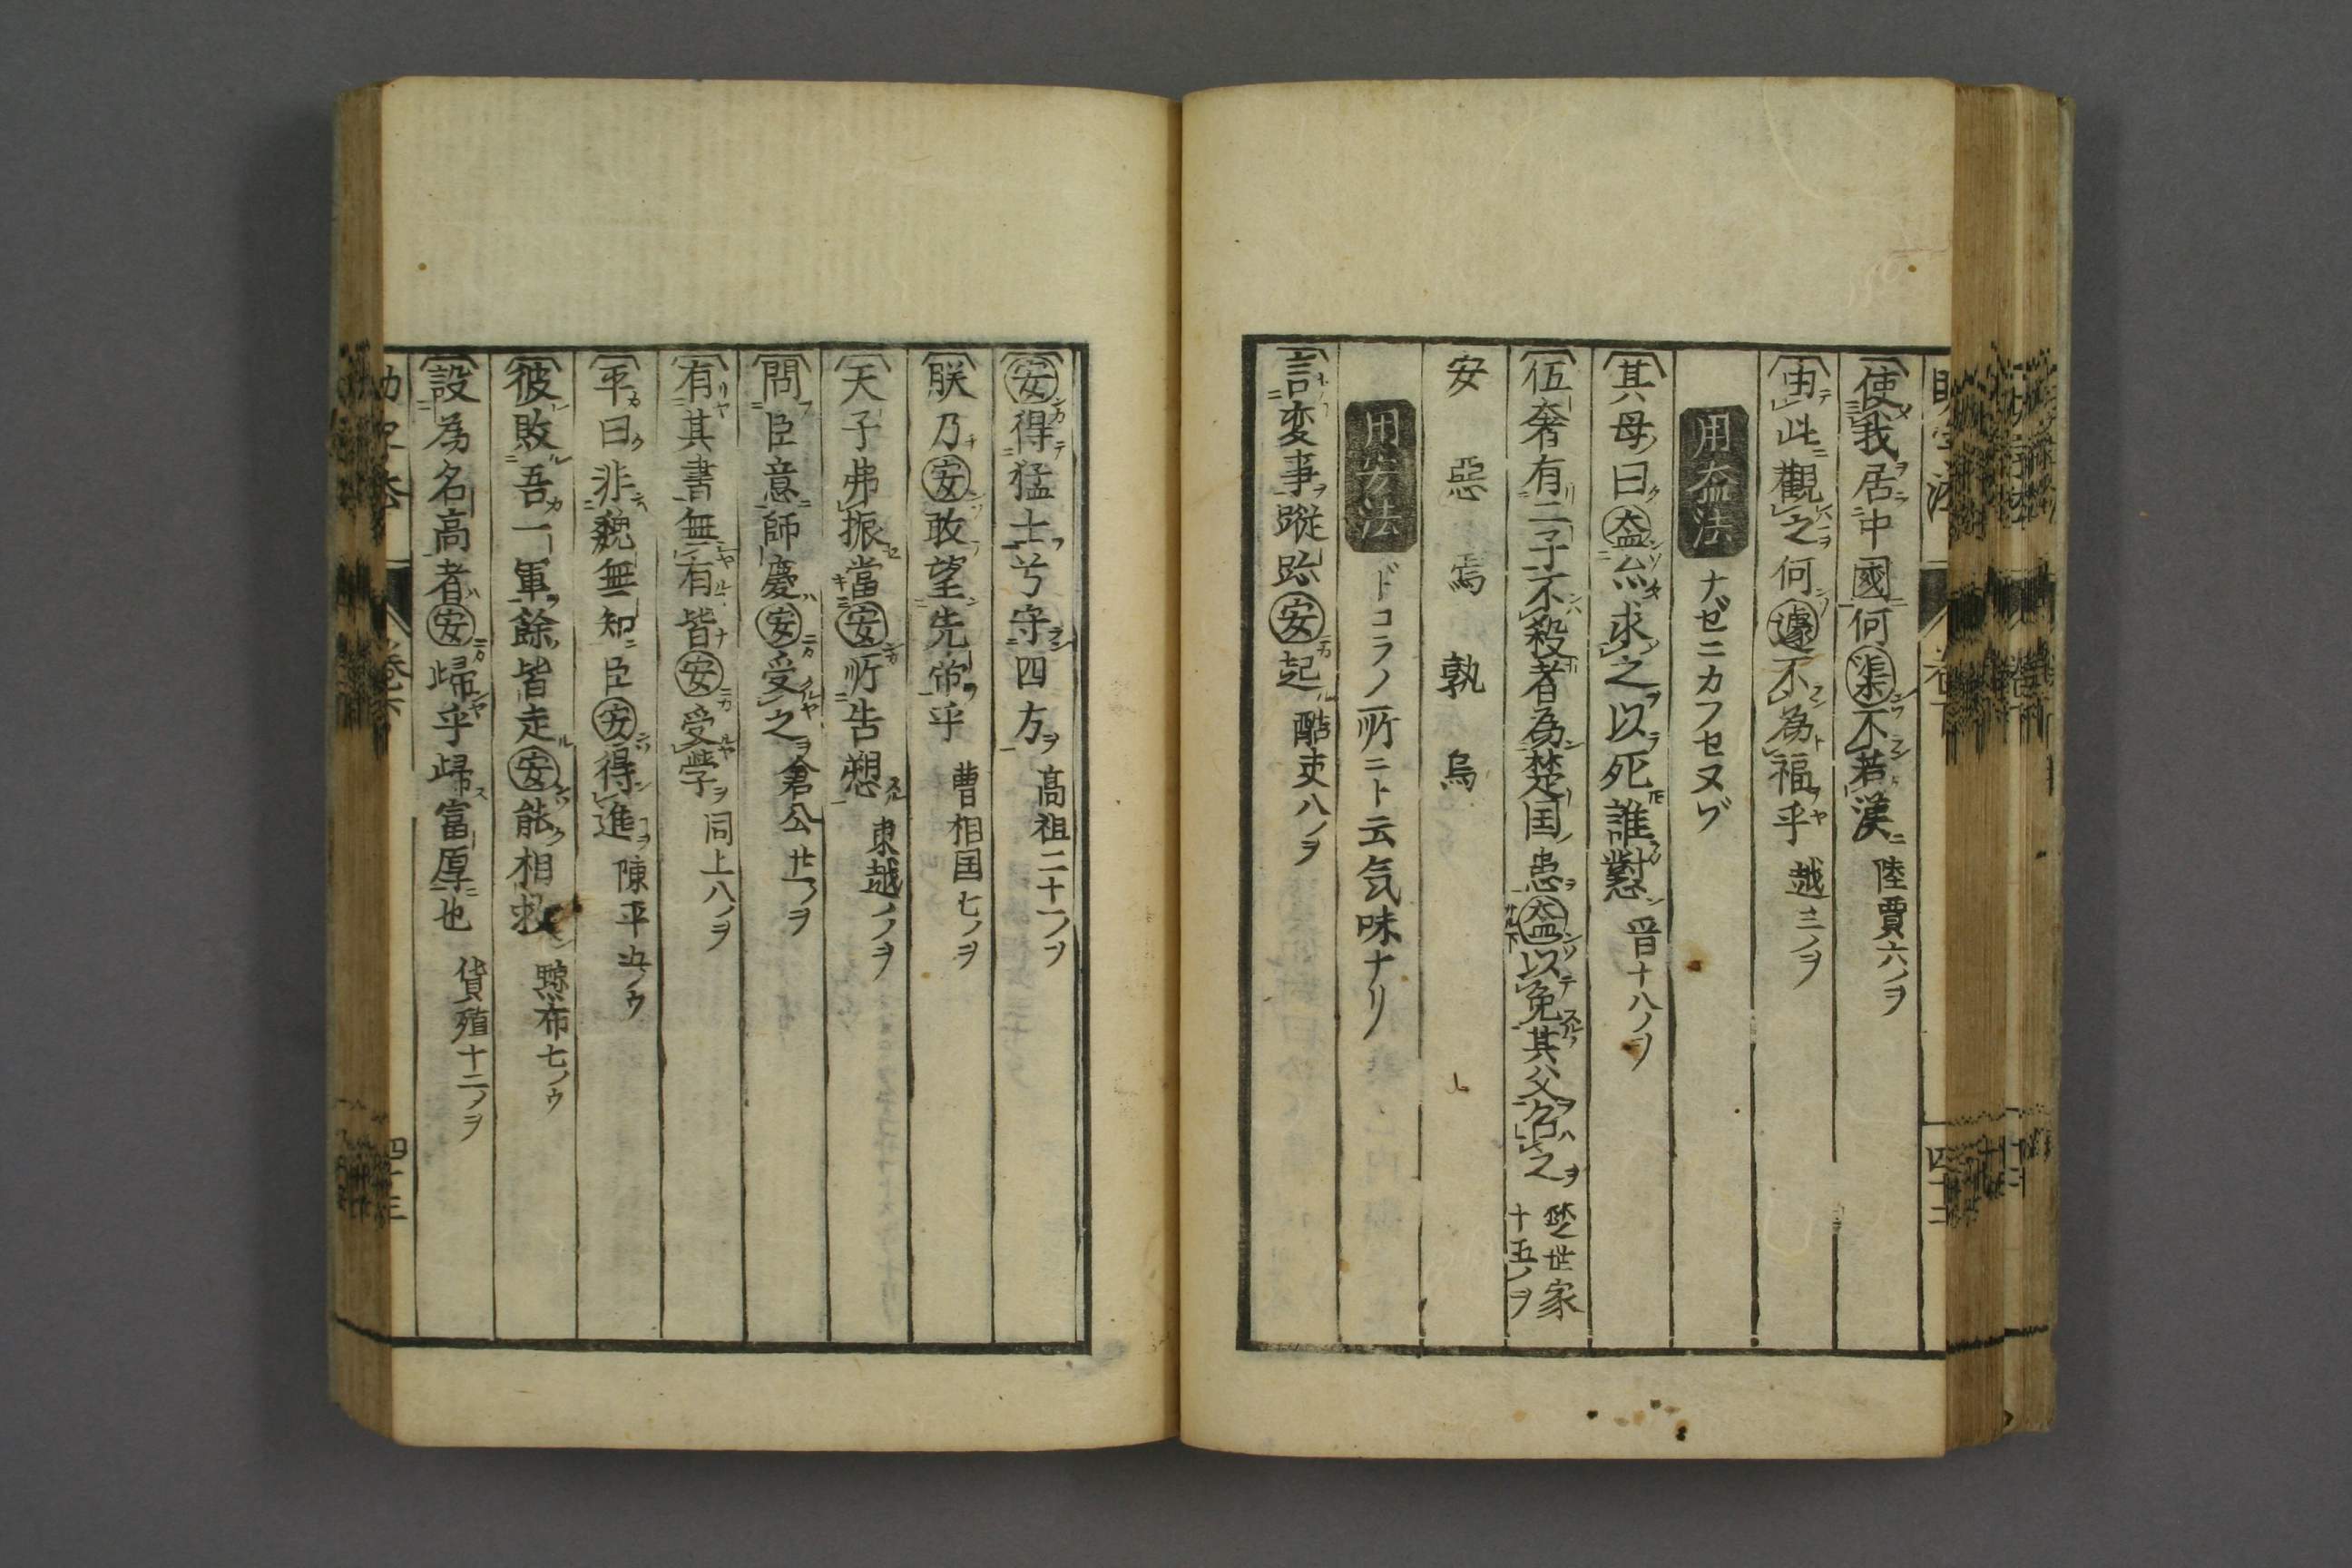 使我居中國何渠不若漢 陸賈六ノヲ
由此觀之何遽不為福乎 越三ノヲ
用盇法 ナゼニカフセヌゾ
其母曰盇亦求之以死誰懟 晋十八ノヲ
伍奢有二子不殺者為楚国患盇以免其父召之 楚世家十五ノヲ
安 惡 焉 孰 烏
用安法 ドコラノ所ニト云気味ナリ
言変事蹤跡安起 酷吏八ノヲ
安得猛士兮守四方 高祖二十一ノヲ
朕乃安敢望先帝乎 曹相国七ノヲ
天子弗振當安所告愬 東越ノヲ
問臣意師慶安受之 倉公廿一ノヲ
有其書無有皆安受学 同上八ノヲ
平曰非魏無知臣安得進 陳平ノウ
彼敗吾一軍餘皆走安能相救 黥布七ノウ
設為名高者安歸乎歸富厚也 貨殖十二ノヲ
四十三